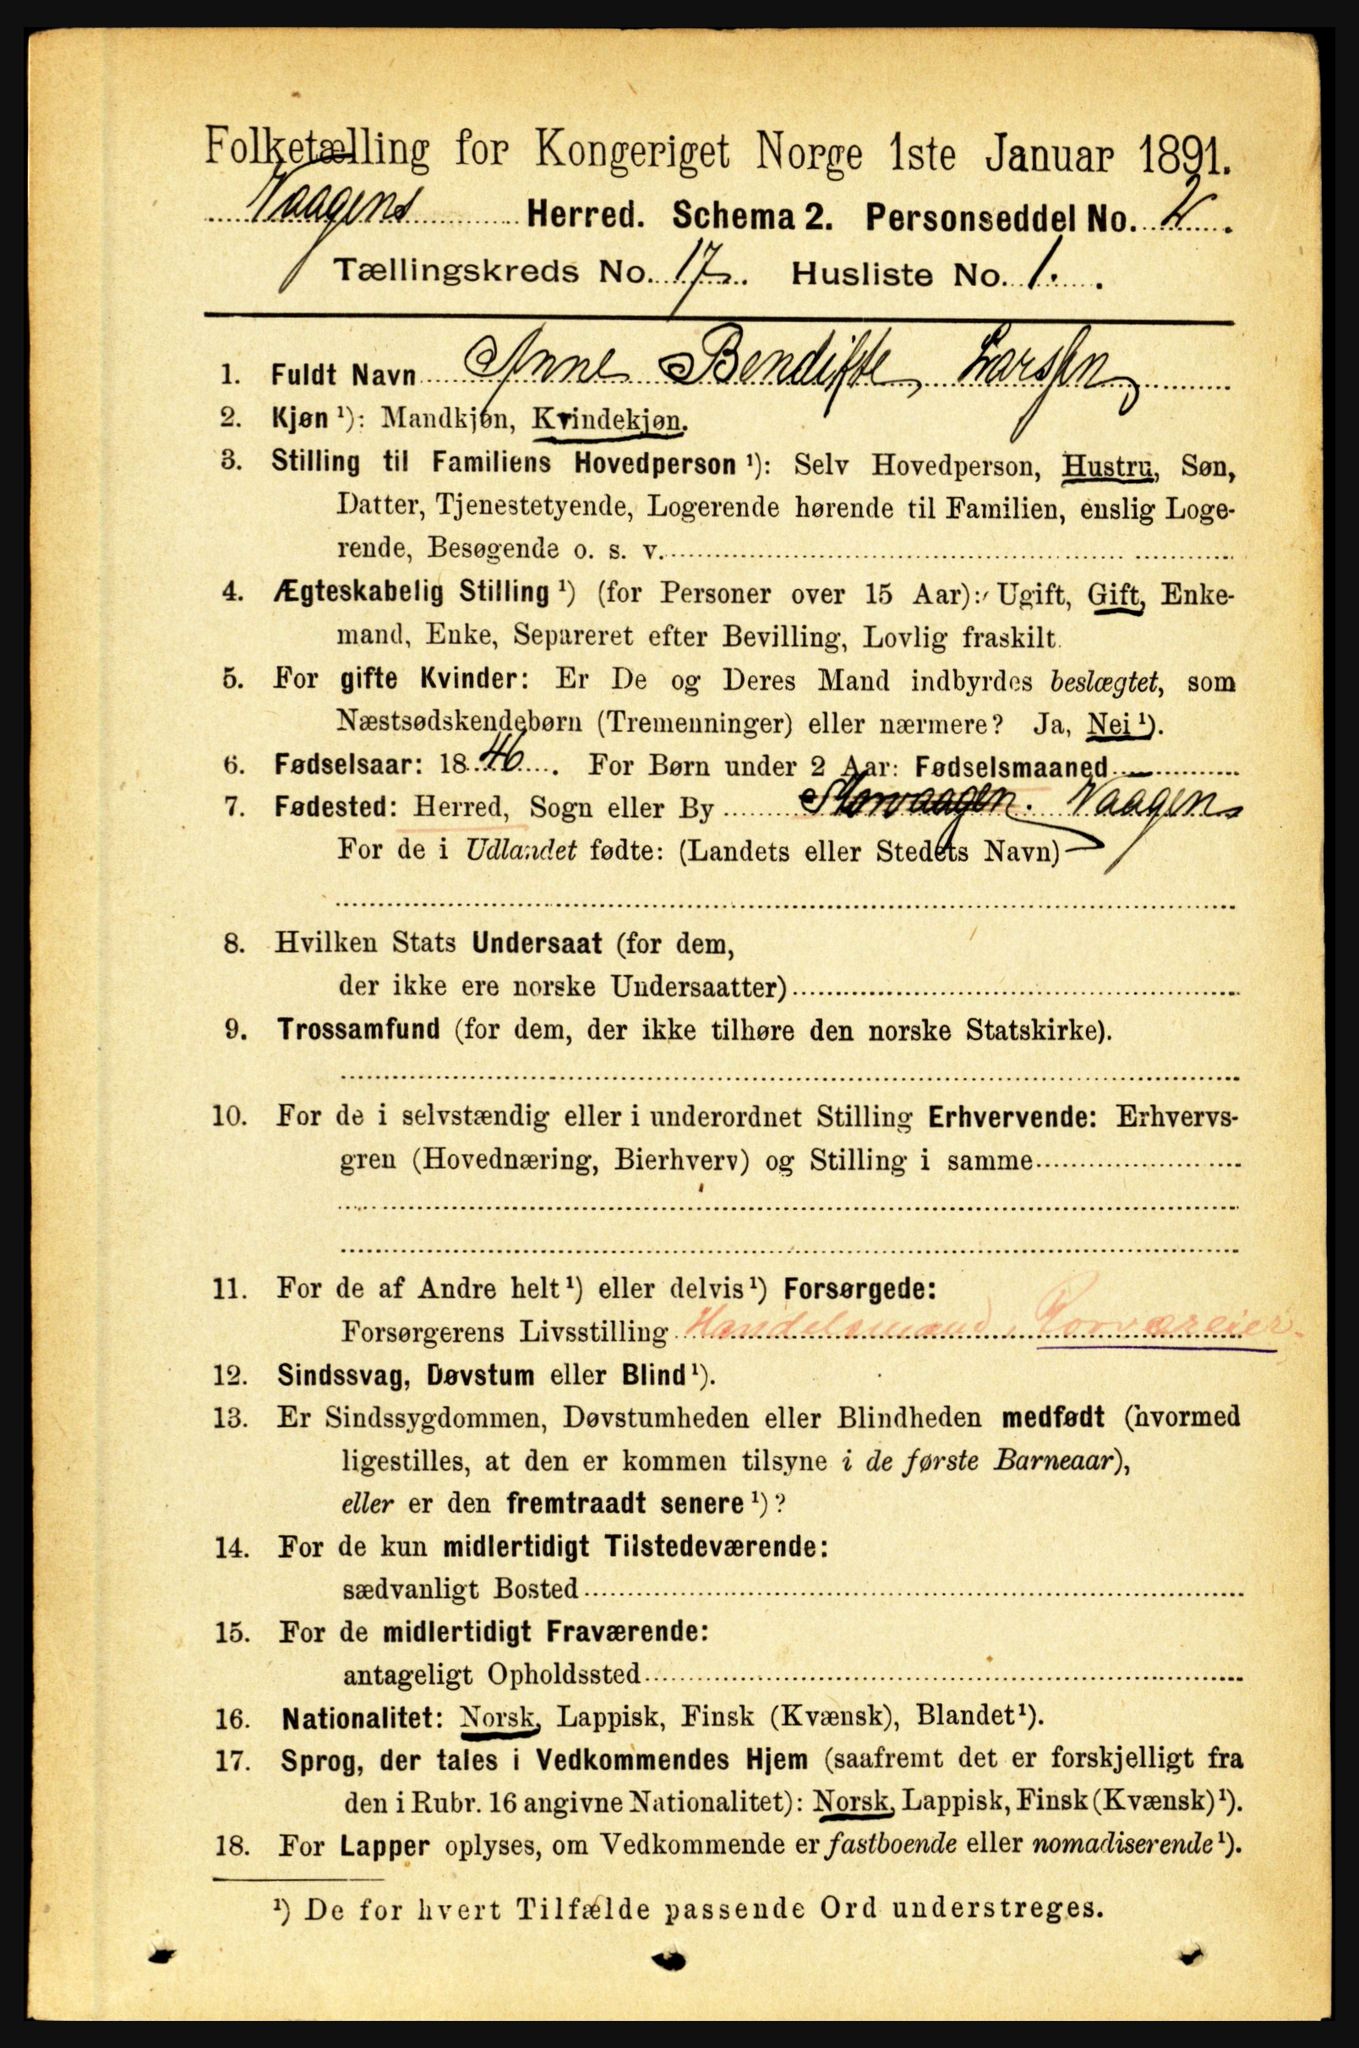 Folketælling for Kongeriget Norge 1ste Januar 1891.
Vaagens Herred. Schema 2. Personseddel No. 2.
Tællingskreds No. 17. Husliste No. 1.
1. Fuldt Navn Anne Bendikte Larsen
2. Kjøn ¹): Mandkjøn, Kvindekjøn.
3. Stilling til Familiens Hovedperson ¹): Selv Hovedperson, Hustru, Søn,
Datter, Tjenestetyende, Logerende hørende til Familien, enslig Loge-
rende, Besøgende o. s. v.
4. Ægteskabelig Stilling ¹) (for Personer over 15 Aar): Ugift, Gift, Enke-
mand, Enke, Separeret efter Bevilling, Lovlig fraskilt.
5. For gifte Kvinder: Er De og Deres Mand indbyrdes beslægtet, som
Næstsødskendebørn (Tremenninger) eller nærmere? Ja, Nei ¹).
6. Fødselsaar: 1846. For Børn under 2 Aar: Fødselsmaaned
7. Fødested: Herred, Sogn eller By Storvaagen. Vaagen
For de i Udlandet fødte: (Landets eller Stedets Navn)
8. Hvilken Stats Undersaat (for dem,
der ikke ere norske Undersaatter)
9. Trossamfund (for dem, der ikke tilhøre den norske Statskirke).
10. For de i selvstændig eller i underordnet Stilling Erhvervende: Erhvervs-
gren (Hovednæring, Bierhverv) og Stilling i samme
11. For de af Andre helt ¹) eller delvis ¹) Forsørgede:
Forsørgerens Livsstilling Handelsmand,
12. Sindssvag, Døvstum eller Blind ¹).
13. Er Sindssygdommen, Døvstumheden eller Blindheden medfødt (hvormed
ligestilles, at den er kommen tilsyne i de første Barneaar),
eller er den fremtraadt senere ¹)?
14. For de kun midlertidigt Tilstedeværende:
sædvanligt Bosted
15. For de midlertidigt Fraværende:
antageligt Opholdssted
16. Nationalitet: Norsk, Lappisk, Finsk (Kvænsk), Blandet ¹).
17. Sprog, der tales i Vedkommendes Hjem (saafremt det er forskjelligt fra
den i Rubr. 16 angivne Nationalitet): Norsk, Lappisk, Finsk (Kvænsk) ¹).
18. For Lapper oplyses, om Vedkommende er fastboende eller nomadiserende ¹).
¹) De for hvert Tilfælde passende Ord understreges.